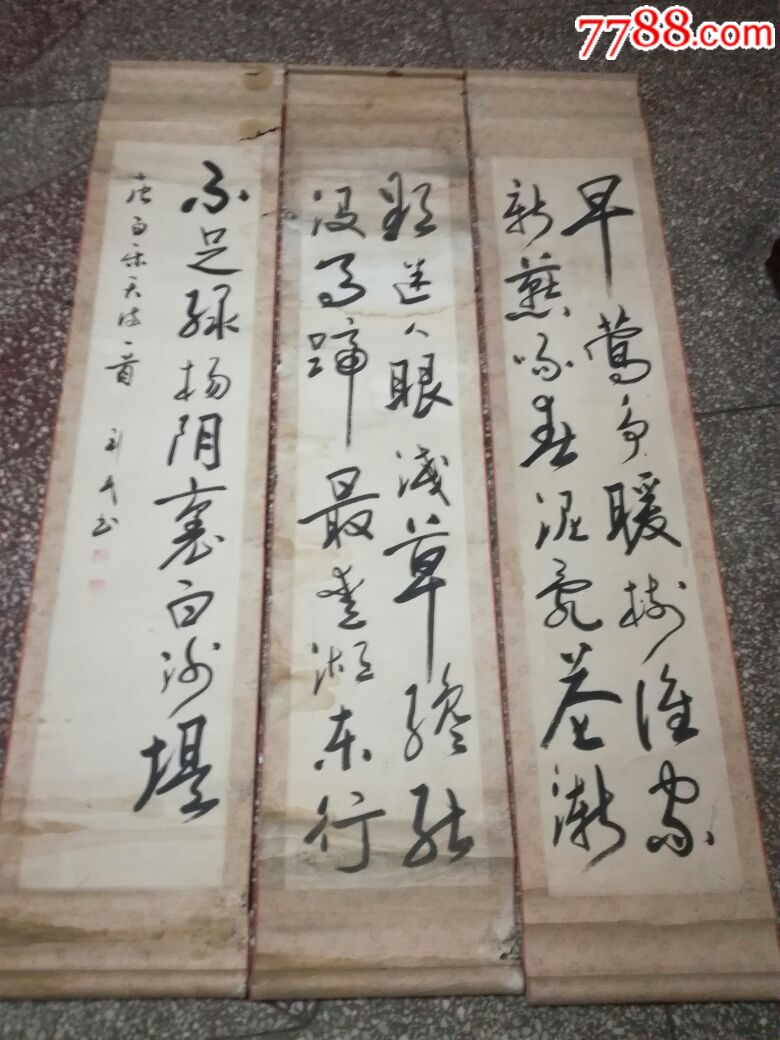 7788.com
早莺争暖树谁家
新燕啄春泥乱花渐
欲迷人眼浅草纔能
没马蹄最爱湖东行
不足绿杨阴裏白沙堤
唐白乐天诗一首 书